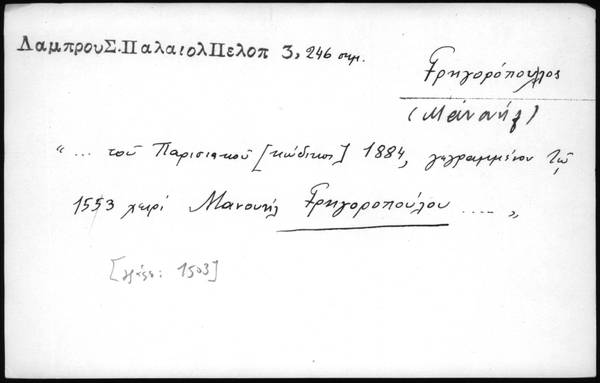 ΛαμπρουΣ.ΠαλαιολΠελοπ 3, 246 σημ.
Γρηγορόπουλος
(Μανουήλ)
“ ... τοῦ Παρισιακοῦ [κώδικος] 1884, γεγραμμένου τῷ
1553 χειρὶ Μανουὴλ Γρηγοροπούλου .... „
[γράψε: 1503]